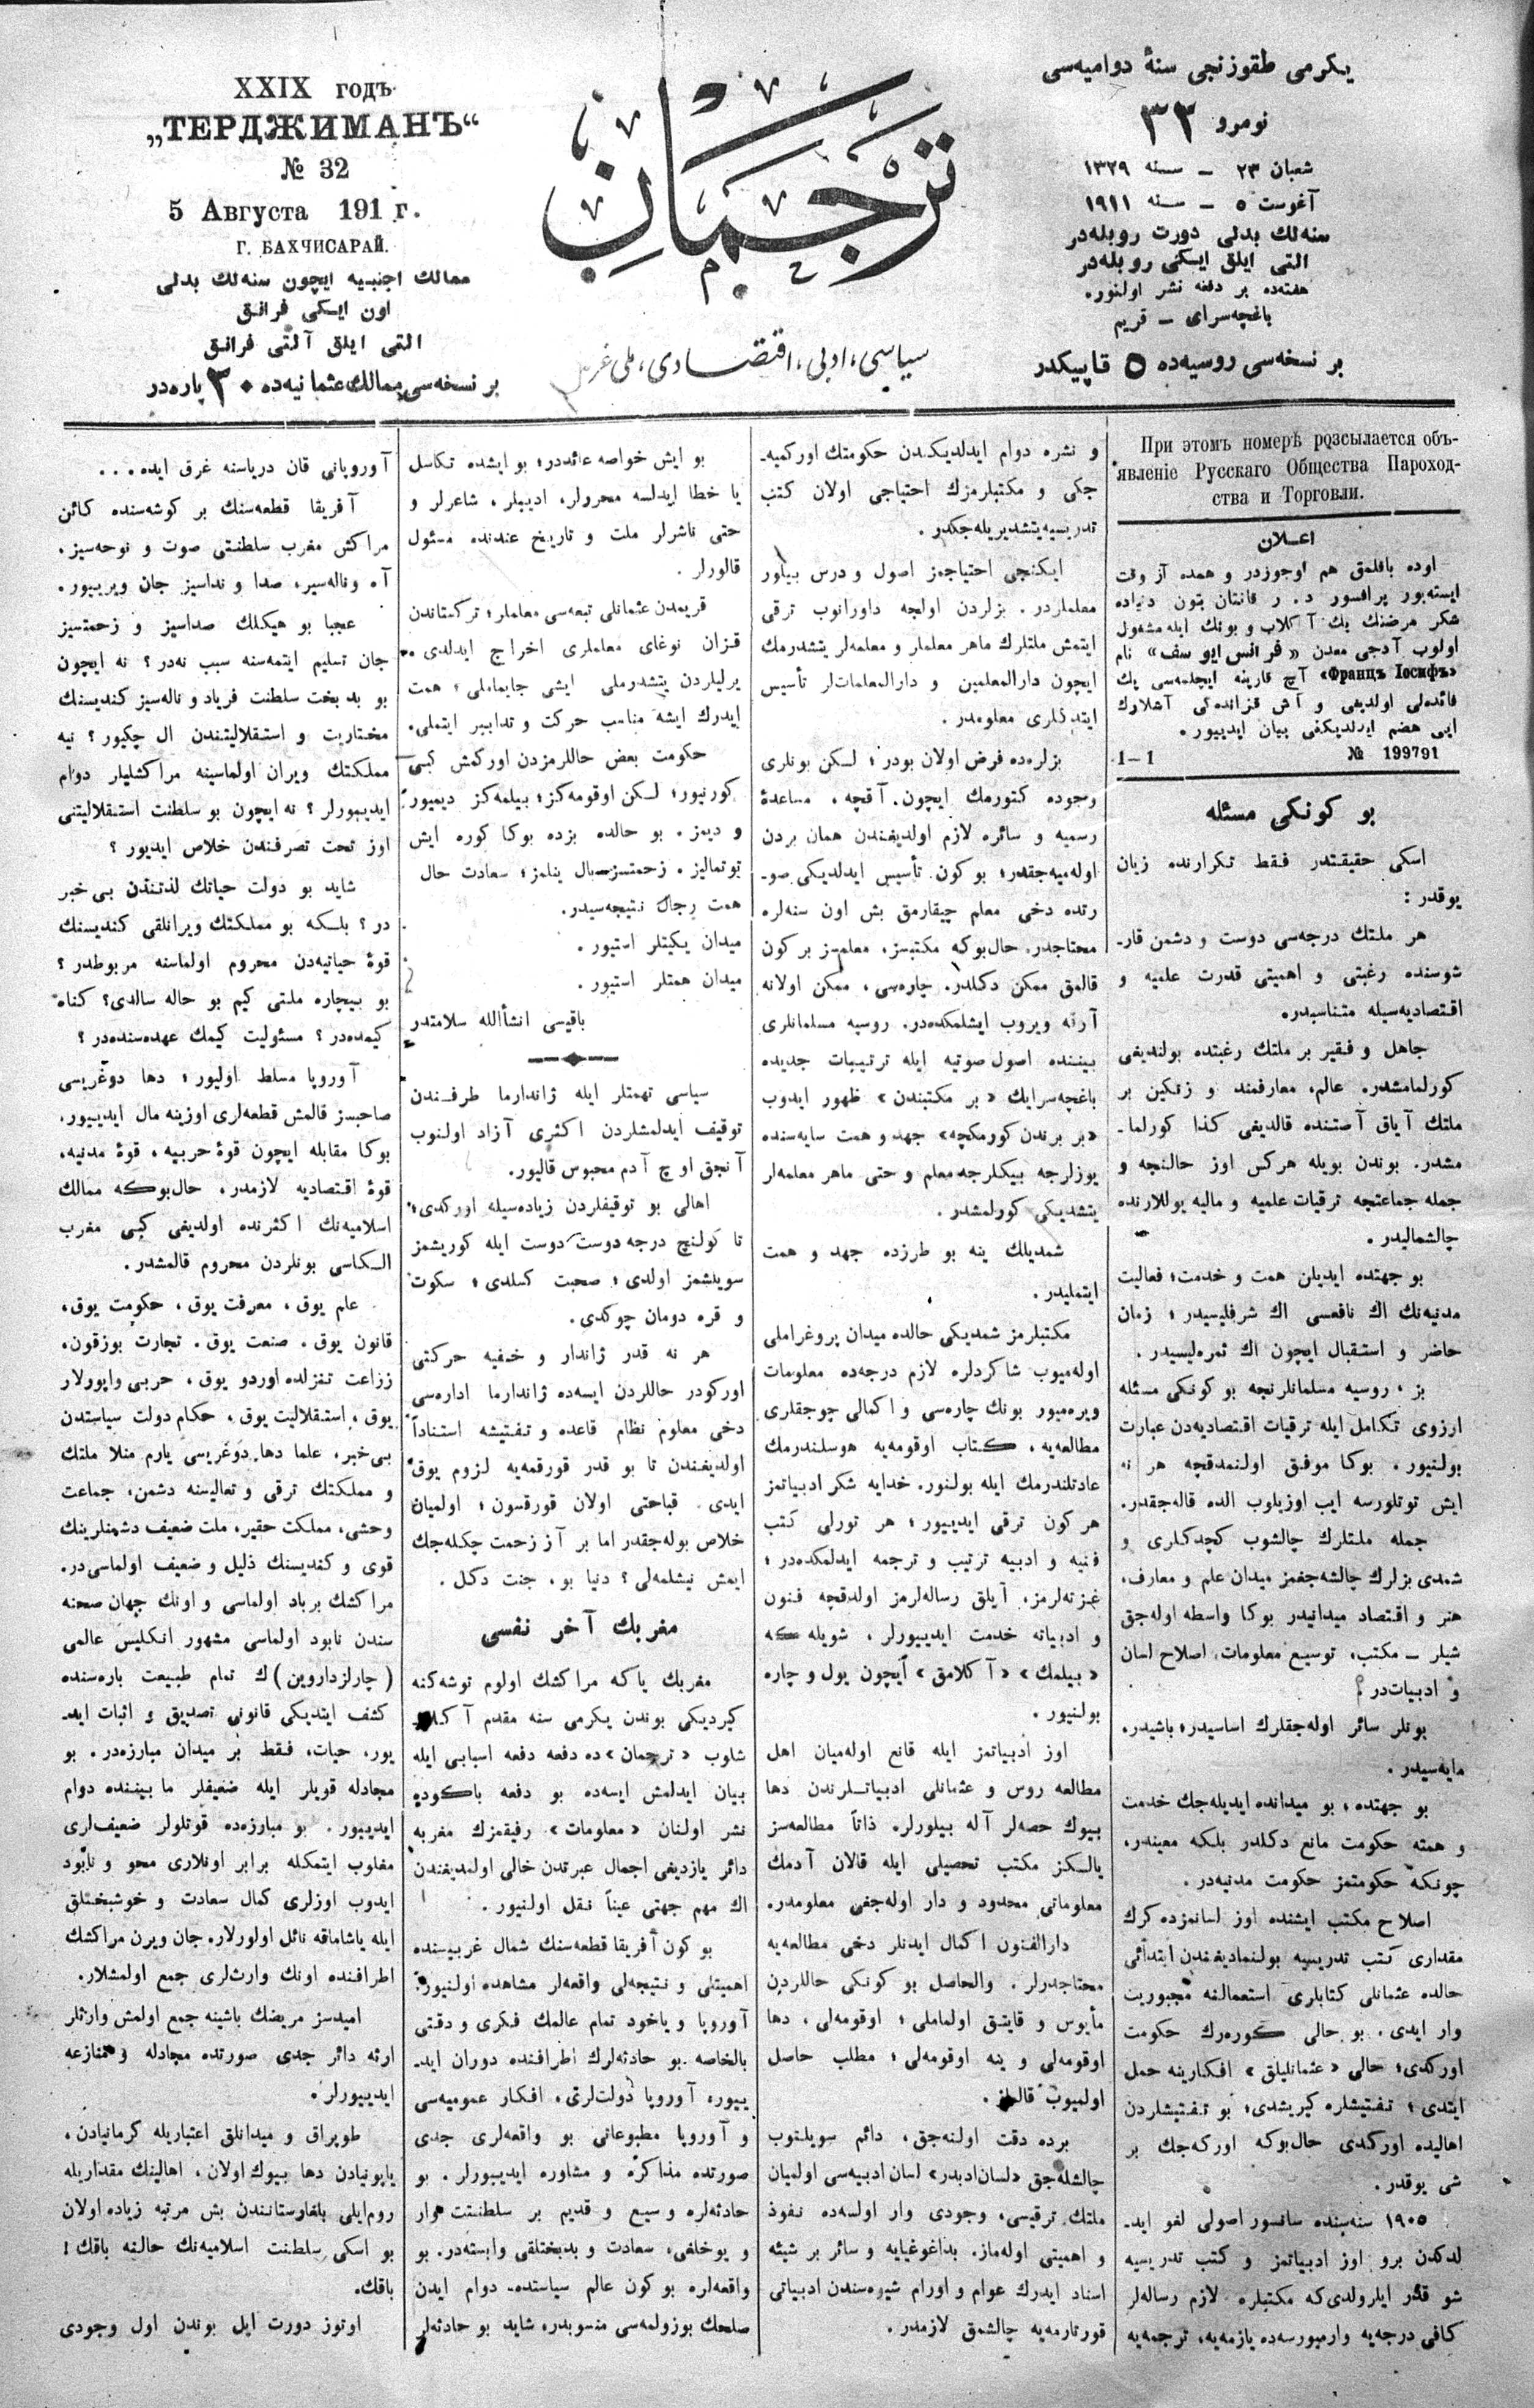 XXIX годъ
„ТЕРДЖИМАНЪ“
№ 32
5 Августа 191 г.
Г. БАХЧИСАРАЙ.
ممالك اجنبيه ايچون سنه‌لك بدلی
اون ايكی فرانق
التی ايلق آلتی فرانق
بر نسخه‌سی ممالك عثمانيه‌ده ۳۰ پاره‌در
ترجمان
سياسی، ادبی، اقتصادی، ملی
يكرمی طقوزنجی سنهٔ دواميه‌سی
نومرو ۳۲
شعبان ۲۳ – سنه ۱۳۲۹
آغوست ۵ – سنه ۱۹۱۱
سنه‌لك بدلی دورت روبله‌در
التی ايلق ايكی روبله‌در
هفته‌ده بر دفعه نشر اولنور.
باغچه‌سرای – قريم
بر نسخه‌سی روسيه‌ده ۵ قاپيكدر
При этомъ номерѣ розсылается объ-
явленіе Русскаго Общества Пароход-
ства и Торговли.
اعلان
اوده باقلمق هم اوجوزدر و همده آز وقت
ايسته‌يور پرافسور د. ر فانتان بتون دنياده
شكر مرضنك يك آكلاب و بونك ايله مشغول
اولوب آدجی معدن «فرانس ايوسف» نام
«Францъ Іосифъ» آچ قارينه ايچلمه‌سی پك
فائده‌لی اولديغی و آش قزانده‌کی آشلارك
ايی هضم ايدلديكنی بيان ايديیور.
№ 199791 1–1
بو كونكی مسئله
اسكی حقيقتدر فقط تكرارنده زيان
يوقدر :
هر ملتك درجه‌سی دوست و دشمن قار-
شوسنده رغبتی و اهميتی قدرت علميه و
اقتصاديه‌سيله متناسبدر.
جاهل و فقير بر ملتك رغبتده بولنديغی
كورلمامشدر. عالم، معارفمند و زنكين بر
ملتك آياق آستنده قالديغی كذا كورلما-
مشدر. بوندن بويله هركس اوز حالنجه و
جمله جماعتچه ترقيات علميه و ماليه يوللارنده
چالشماليدر.
بو جهتده ايديلن همت و خدمت؛ فعاليت
مدنيه‌نك اك نافعسی اك شرفليسيدر؛ زمان
حاضر و استقبال ايچون اك ثمره‌ليسيدر.
بز، روسيه مسلمانلرنجه بو كونكی مسئله
ارزوی تكامل ايله ترقيات اقتصاديه‌دن عبارت
بولنيور. بوكا موفق اولنمدقچه هر نه
ايش توتلورسه ايب اوزيلوب الده قاله‌جقدر.
جمله ملتلرك چالشوب كچدكلری و
شمدی بزلرك چالشه‌جغمز ميدان علم و معارف،
هنر و اقتصاد ميدانيدر بوكا واسطه اوله‌جق
شيلر – مكتب، توسيع معلومات، اصلاح لسان
و ادبيات‌در.
بونلر سائر اوله‌جقلرك اساسيدر؛ باشيدر،
مايه‌سيدر.
بو جهتده، بو ميدانده ايديله‌جك خدمت
و همته حكومت مانع دكلدر بلكه معيندر،
چونكه حكومتمز حكومت مدنيه‌در.
اصلاح مكتب ايشنده اوز لسانمزده كرك
مقداری كتب تدريسيه بولنماديغندن ابتدائی
حالده عثمانلی كتابلری استعمالنه مجبوريت
وار ايدی. بو حالی كوره‌رك حكومت
اوركدی؛ حالی «عثمانليلق» افكارينه حمل
ايتدی؛ تفتيشلره كيريشدی؛ بو تفتيشلردن
اهاليده اوركدی حال‌بوكه اوركه‌جك بر
شی يوقدر.
۱۹۰۵ سنه‌سنده سانسور اصولی لغو ايد-
لدكدن برو اوز ادبياتمز و كتب تدريسيه
شو قدر ايلرولدی‌كه مكتبلره لازم رساله‌لر
كافی درجه‌يه وارميورسه‌ده يازمه‌يه، ترجمه‌يه
و نشره دوام ايدلديكدن حكومتك اوركميه-
جكی و مكتبلرمزك احتياجی اولان كتب
تدريسيه يتشديريله‌جكدر.
ايكنجی احتياجمز اصول و درس بيلور
معلملردر. بزلردن اولجه داورانوب ترقی
ايتمش ملتلرك ماهر معلملر و معلمه‌لر يتشدرمك
ايچون دارالمعلمين و دارالمعلمات‌لر تأسيس
ايتدكلری معلومدر.
بزلره‌ده فرض اولان بودر؛ لكن بونلری
وجوده كتورمك ايچون. آقچه، مساعدهٔ
رسميه و سائره لازم اولديغندن همان بردن
اوله‌ميه‌جقدر؛ بو كون تأسيس ايدلديكی صو-
رتده دخی معلم چيقارمق بش اون سنه‌لره
محتاجدر. حال‌بوكه مكتبسز، معلمسز بر كون
قالمق ممكن دكلدر. چاره‌سی، ممكن اولانه
آرته ويروب ايشلمكده‌در. روسيه مسلمانلری
بيننده اصول صوتيه ايله ترتيبات جديده
باغچه‌سرايك «بر مكتبندن» ظهور ايدوب
«بر برندن كورمكچه» جهد و همت سايه‌سنده
يوزلرجه بيكلرجه معلم و حتی ماهر معلمه‌لر
يتشديكی كورلمشدر.
شمديلك ينه بو طرزده جهد و همت
ايتمليدر.
مكتبلرمز شمديكی حالده ميدان پروغراملی
اوله‌ميوب شاكردلره لازم درجه‌ده معلومات
ويره‌ميور بونك چاره‌سی و اكمالی چوجقلری
مطالعه‌يه، كتاب اوقومه‌يه هوسلندرمك
عادتلندرمك ايله بولنور. خدايه شكر ادبياتمز
هركون ترقی ايديیور؛ هر تورلی كتب
فنيه و ادبيه ترتيب و ترجمه ايدلمكده‌در؛
غزته‌لرمز، آيلق رساله‌لرمز اولدقچه فنون
و ادبياته خدمت ايديیورلر، شويله كه
«بيلمك» «آكلامق» ايچون يول و چاره
بولنيور.
اوز ادبياتمز ايله قانع اوله‌ميان اهل
مطالعه روس و عثمانلی ادبياتلرندن دها
بيوك حصه‌لر آله بيلورلر. ذاتاً مطالعه‌سز
يالكز مكتب تحصيلی ايله قالان آدمك
معلوماتی محدود و دار اوله‌جغی معلومدر.
دارالفنون اكمال ايدنلر دخی مطالعه‌يه
محتاجدرلر. والحاصل بو كونكی حاللردن
مأيوس و قايتق اولماملی؛ اوقومه‌لی، دها
اوقومه‌لی و ينه اوقومه‌لی؛ مطلب حاصل
اولميوب قالماز.
برده دقت اولنه‌جق، دائم سويلنوب
چالشله‌جق «لسان ادبدر» لسان ادبيه‌سی اولميان
ملتك ترقيسی، وجودی وار اولسه‌ده نفوذ
و اهميتی اوله‌ماز. بداغوغيايه و سائر بر شيئه
اسناد ايدرك عوام و اورام شيوه‌سندن ادبياتی
قورتارمه‌يه چالشمق لازمدر.
بو ايش خواصه عائددر؛ بو ايشده تكاسل
يا خطا ايدلسه محررلر، اديبلر، شاعرلر و
حتی ناشرلر ملت و تاريخ عندنده مسئول
قالورلر.
قريمدن عثمانلی تبعه‌سی معلملر؛ تركستاندن
قزان نوغای معلملری اخراج ايدلدی..
يرليلردن يتشدرملی ايشی جايماملی؛ همت
ايدرك ايشه مناسب حركت و تدابير ايتملی.
حكومت بعض حاللرمزدن اوركمش كبی
كورنيور؛ لكن اوقومه‌كز؛ بيلمه‌كز ديميور
و ديمز. بو حالده بزده بوكا كوره ايش
توتماليز. زحمتسز بال ينلمز؛ سعادت حال
همت رجال نتيجه‌سيدر.
ميدان يكيتلر استيور.
ميدان همتلر استيور.
باقيسی انشأالله سلامتدر
سياسی تهمتلر ايله ژاندارما طرفندن
توقيف ايدلمشلردن اكثری آزاد اولنوب
آنجق اوچ آدم محبوس قاليور.
اهالی بو توقيفلردن زياده‌سيله اوركدی؛
تا كولنچ درجه دوست دوست ايله كوريشمز
سويلشمز اولدی؛ صحبت كسلدی؛ سكوت
و قره دومان چوكدی.
هر نه قدر ژاندار و خفيه حركتی
اوركودر حاللردن ايسه‌ده ژاندارما اداره‌سی
دخی معلوم نظام قاعده و تفتيشه استناداً
اولديغندن تا بو قدر قورقمه‌يه لزوم يوق
ايدی. قباحتی اولان قورقسون؛ اولميان
خلاص بوله‌جقدر اما بر آز زحمت چكله‌جك
ايمش نيشلمه‌لی؟ دنيا بو، جنت دكل.
مغربك آخر نفسی
مغربك ياكه مراكشك اولوم توشه‌كنه
كيرديكی بوندن يكرمی سنه مقدم
شلوب «ترجمان»ده دفعه دفعه اسبابی ايله
بيان ايدلمش ايسه‌ده بو دفعه باكوده
نشر اولنان «معلومات» رفيقمزك مغربه
دائر يازديغی اجمال عبرتدن خالی اولمديغندن
اك مهم جهتی عيناً نقل اولنيور.
بو كون آفريقا قطعه‌سنك شمال غربيسنده
اهميتلی و نتيجه‌لی واقعه‌لر مشاهده اولنيور.
آوروپا و ياخود تمام عالمك فكری و دقتی
بالخاصه بو حادثه‌لرك اطرافنده دوران ايد-
ييور، آوروپا دولت‌لری، افكار عموميه‌سی
و آوروپا مطبوعاتی بو واقعه‌لری جدی
صورتده مذاكره و مشاوره ايديیورلر. بو
حادثه‌لره وسيع و قديم بر سلطنتك وار
و يوخلغی، سعادت و بدبختلقی وابسته‌در. بو
واقعه‌لره بو كون عالم سياستده دوام ايدن
صلحك بوزولمه‌سی منسوبدر، شايد بو حادثه‌لر
آوروپانی قان درياسنه غرق ايده...
آفريقا قطعه‌سنك بر كوشه‌سنده كائن
مراكش مغرب سلطنتی صوت و نوحه‌سيز،
آه و ناله‌سيز، صدا و نداسيز جان ويريیور.
عجبا بو هيكلك صداسيز و زحمتسيز
جان تسليم ايتمه‌سنه سبب نه‌در؟ نه ايچون
بو بدبخت سلطنت فرياد و ناله‌سيز كنديسنك
مختاريت و استقلاليتندن ال چكيور؟ نيه
مملكتك ويران اولماسينه مراكشليلر دوام
ايديیورلر؟ نه ايچون بو سلطنت استقلاليتنی
اوز تحت تصرفندن خلاص ايديور؟
شايد بو دولت حياتك لذتندن بی‌خبر
در؟ بلكه بو مملكتك ويرانلقی كنديسنك
قوهٔ حياتيه‌دن محروم اولماسنه مربوطدر؟
بو بيچاره ملتی كيم بو حاله سالدی؟ كناه
كيمده‌در؟ مسئوليت كيمك عهده‌سنده‌در؟
آوروپا مسلط اوليور؛ دها دوغريسی
صاحبسز قالمش قطعه‌لری اوزينه مال ايديیور.
بوكا مقابله ايچون قوهٔ حربيه، قوهٔ مدنيه،
قوهٔ اقتصاديه لازمدر، حال‌بوكه ممالك
اسلاميه‌نك اكثرنده اولديغی كبی مغرب
الكاسی بونلردن محروم قالمشدر.
علم يوق، معرفت يوق، حكومت يوق،
قانون يوق. صنعت يوق. تجارت بوزقون،
زراعت تنزلده اوردو يوق، حربی واپورلار
يوق، استقلاليت يوق، حكام دولت سياستدن
بی‌خبر، علما دها دوغريسی يارم منلا ملتك
و مملكتك ترقی و تعاليسنه دشمن، جماعت
وحشی، مملكت حقير، ملت ضعيف دشمنلرينك
قوی و كنديسنك ذليل و ضعيف اولماسی‌در.
مراكشك برباد اولماسی و اونك جهان صحنه
سندن نابود اولماسی مشهور انكليس عالمی
(چارلزداروين)ك تمام طبيعت باره‌سنده
كشف ايتديكی قانونی تصديق و اثبات ايد-
يور، حيات، فقط بر ميدان مبارزه‌در. بو
مجادله قويلر ايله ضعيفلر مابيننده دوام
ايديیور. بو مبارزه‌ده قوتلولر ضعيف‌لری
مغلوب ايتمكله برابر اونلاری محو و نابود
ايدوب اوزلری كمال سعادت و خوشبختلق
ايله ياشاماقه نائل اولورلار. جان ويرن مراكشك
اطرافنده اونك وارث‌لری جمع اولمشلار.
اميدسز مريضك باشينه جمع اولمش وارثلر
ارثه دائر جدی صورتده مجادله و منازعه
ايديیورلر.
طوپراق و ميدانلق اعتباريله كرمانيادن،
ياپونيادن دها بيوك اولان، اهالينك مقداريله
روم‌ايلی بلغارستانندن بش مرتبه زياده اولان
بو اسكی سلطنت اسلاميه‌نك حالنه باقك!
باقك.
اوتوز دورت ايل بوندن اول وجودی